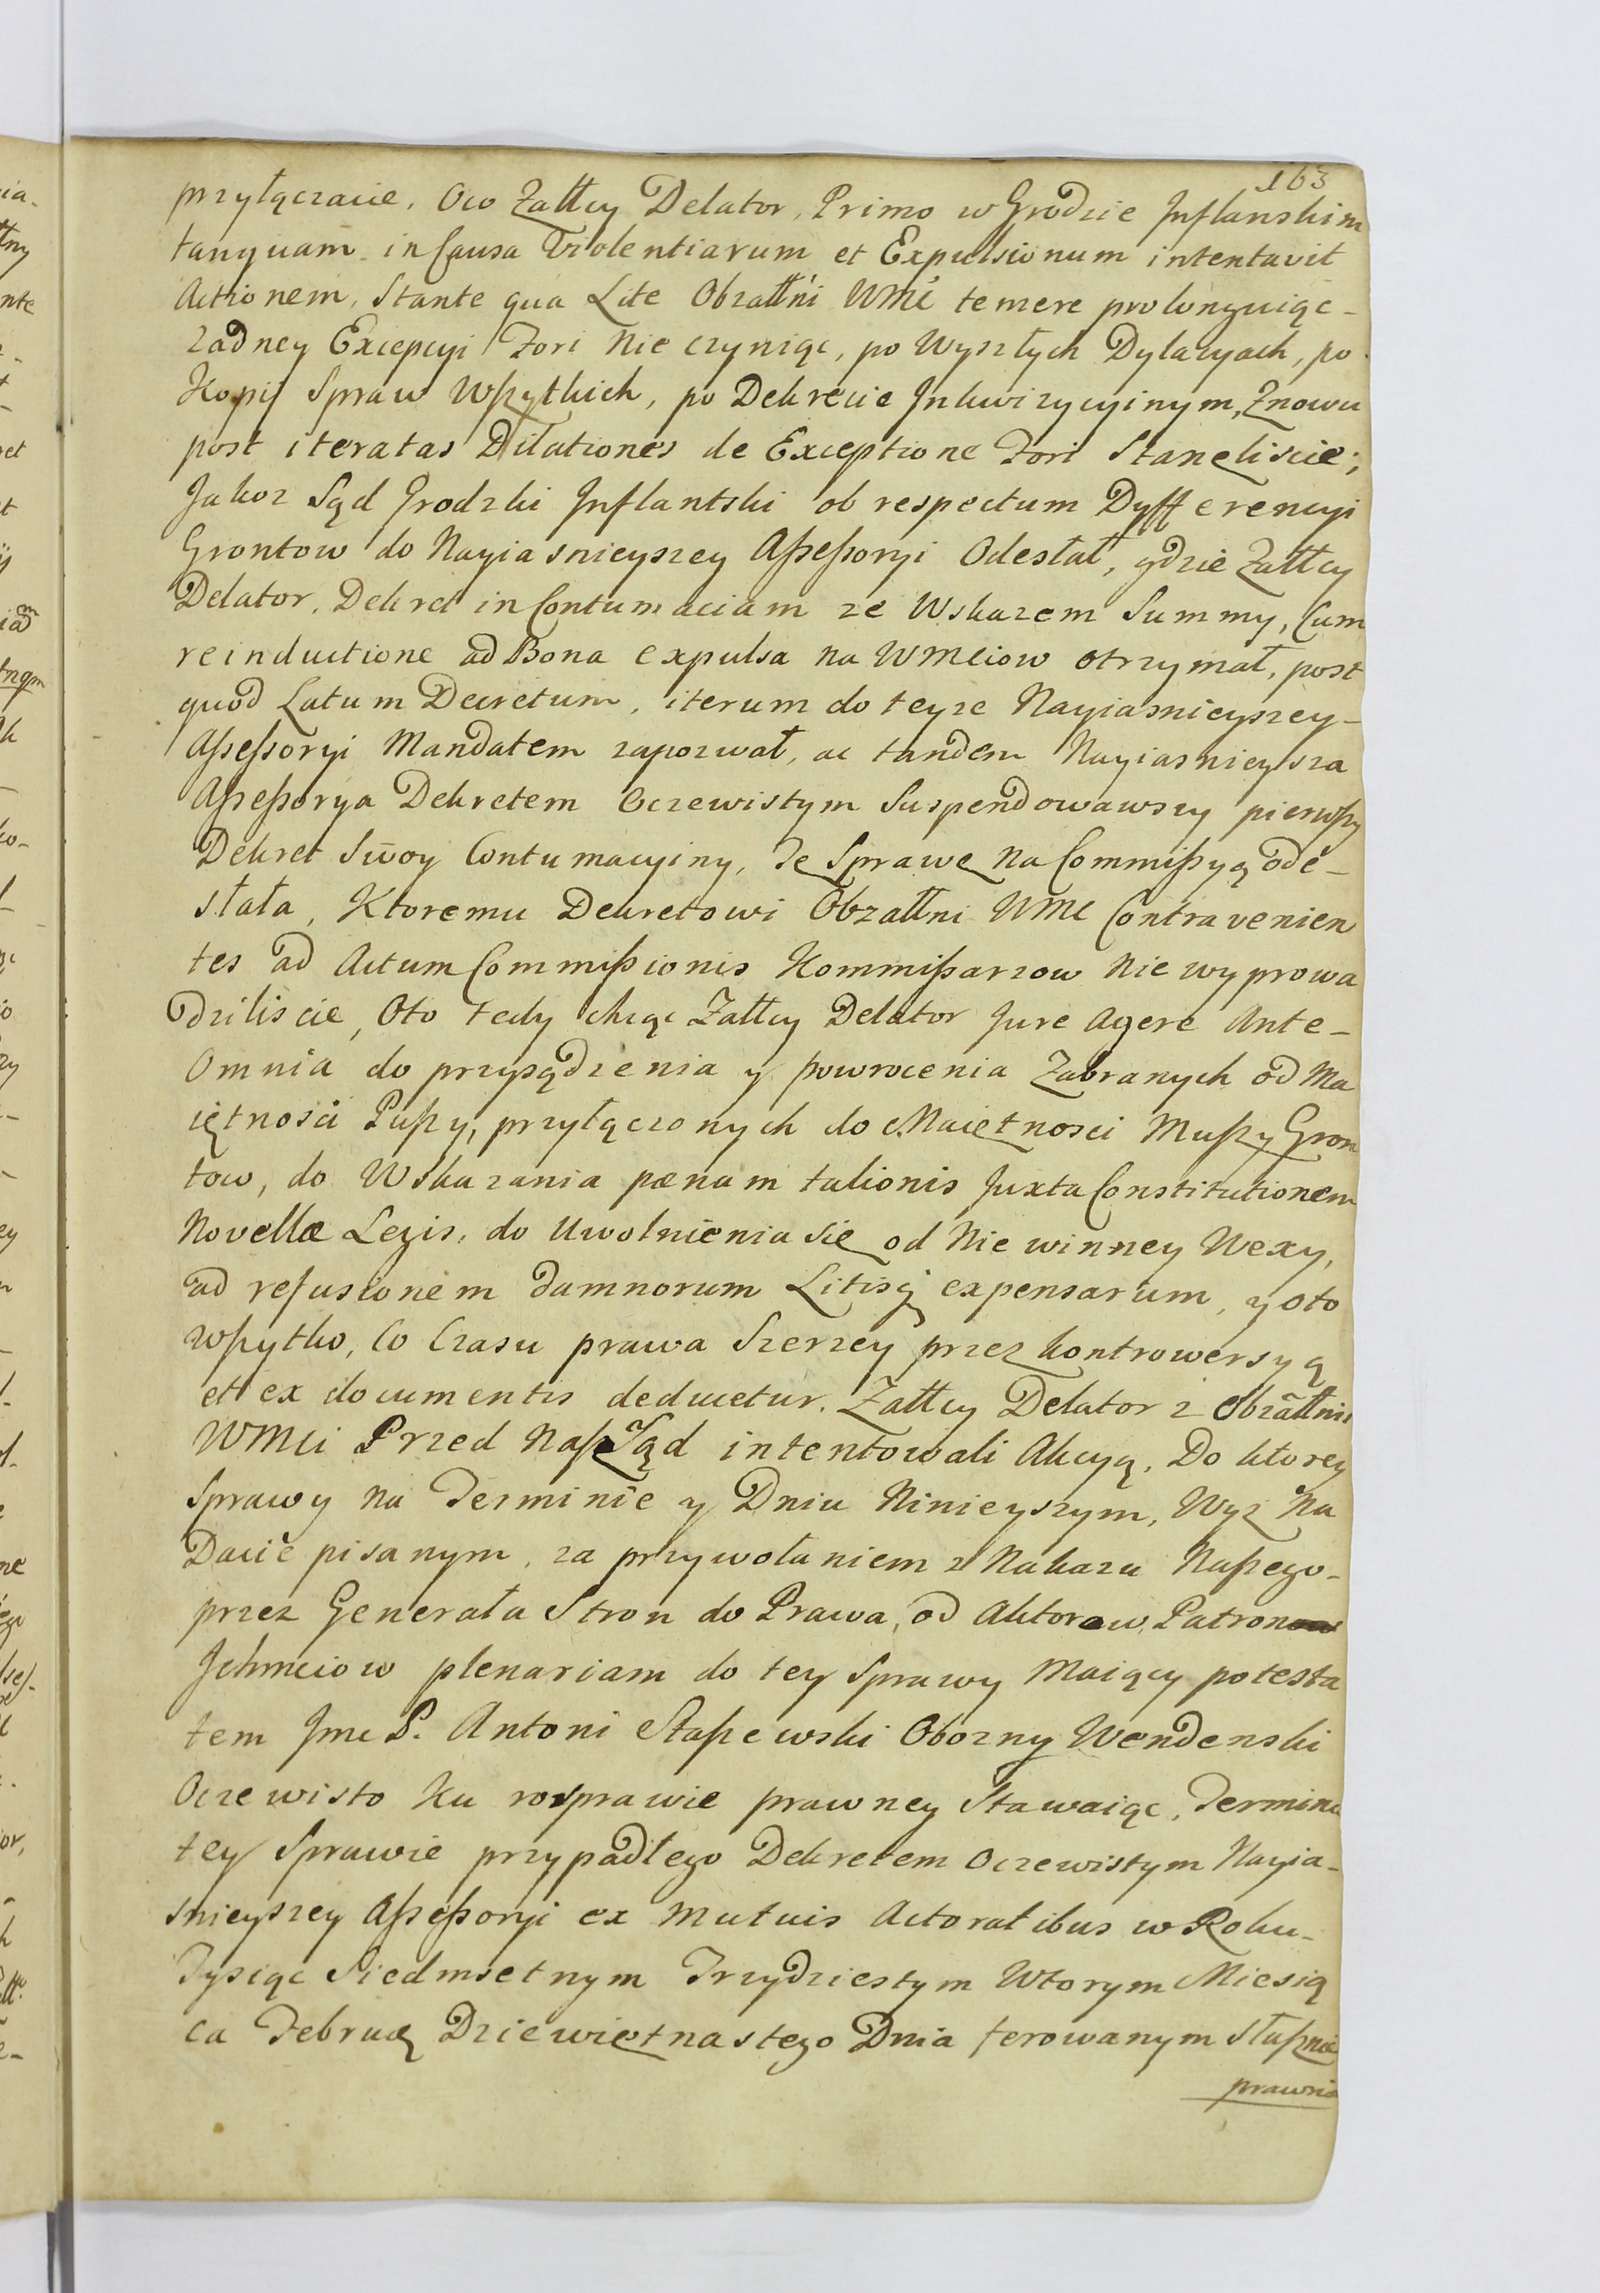 163
przyłączacie. Oco Załłcy Delator, Primo w Grodzie Inflanskim
tanquam in Causa Violentiarum et Expulsionum intentavit
Actionem, Stante qua Lite Obzałłni WMć temere prolonguiąc-
żadney Excepcyi Fori nie czyniąc, po Wyszłych Dylacyach, po
Kopij Spraw Wszytkich, po Dekrecie Inkwizycyinym, Znowu
post iteratas Dilationes de Exceptione Fori Stanęliscie;
Jakoz Sąd Grodzki Inflantski ob respectum Dyfferencyi
Grontow do Nayiasnieyszey Assessoryi Odesłał, gdzie Załłcy
Delator, Dekret in Contumaciam ze Wskazem Summy, Cum
reinductione ad Bona expulsa na WMciow otrzymał, post
quod Latum Decretum, iterum do teyze Nayiasnieyszey-
Assessoryi Mandatem zapozwał, ac tandem Nayiasnieysza
Assessorya Dekretem Oczewistym Suspendowawszy pierwszy
Dekret Swoy Contumacyiny, Te Sprawę na Commissyą ode-
słała, Ktoremu Dekretowi Obzałłni WMć Contravenien
tes ad Actum Commissionis Kommissarzow nie wyprowa
dziliscie, Oto tedy chcąc Załłcy Delator Jure Agere Ante-
Omnia do przysądzenia y powrocenia Zabranych od Ma
iętnosci Puszy, przyłączonych do Maiętnosci Muszy Gron
tow, do Wskazania pænam talionis Juxta Constitutionem
Novellæ Legis, do Uwolnienia się od Niewinney Wexy,
ad refusionem damnorum Litisq expensarum, y oto
wszytko, Co Czasu prawa Szerzey przez kontrowersyą
et ex documentis deducetur. Załłcy Delator z Obzałłni
WMci Przed Nasz Sąd intentowali Akcyą, Do ktorey
Sprawy na Terminie y Dniu Ninieyszym, Wyz Na
Dacie pisanym, za przywołaniem z Nakazu Naszego-
przez Generała Stron do Prawa, od Aktorow Patron
Ichmciow plenariam do tey Sprawy Maiący potesta
tem Jmc P. Antoni Staszewski Obozny Wendenski
Oczewisto Ku rosprawie prawney Stawaiąc, Terminu
tey Sprawie przypadłego Dekretem Oczewistym Nayia-
snieyszey Assessoryi ex Mutuis Actoratibus w Roku-
Tysiąc Siedmsetnym Trzydziestym Wtorym Miesią
ca Februą Dziewiętnastego Dnia ferowanym Słusznie
prawnie